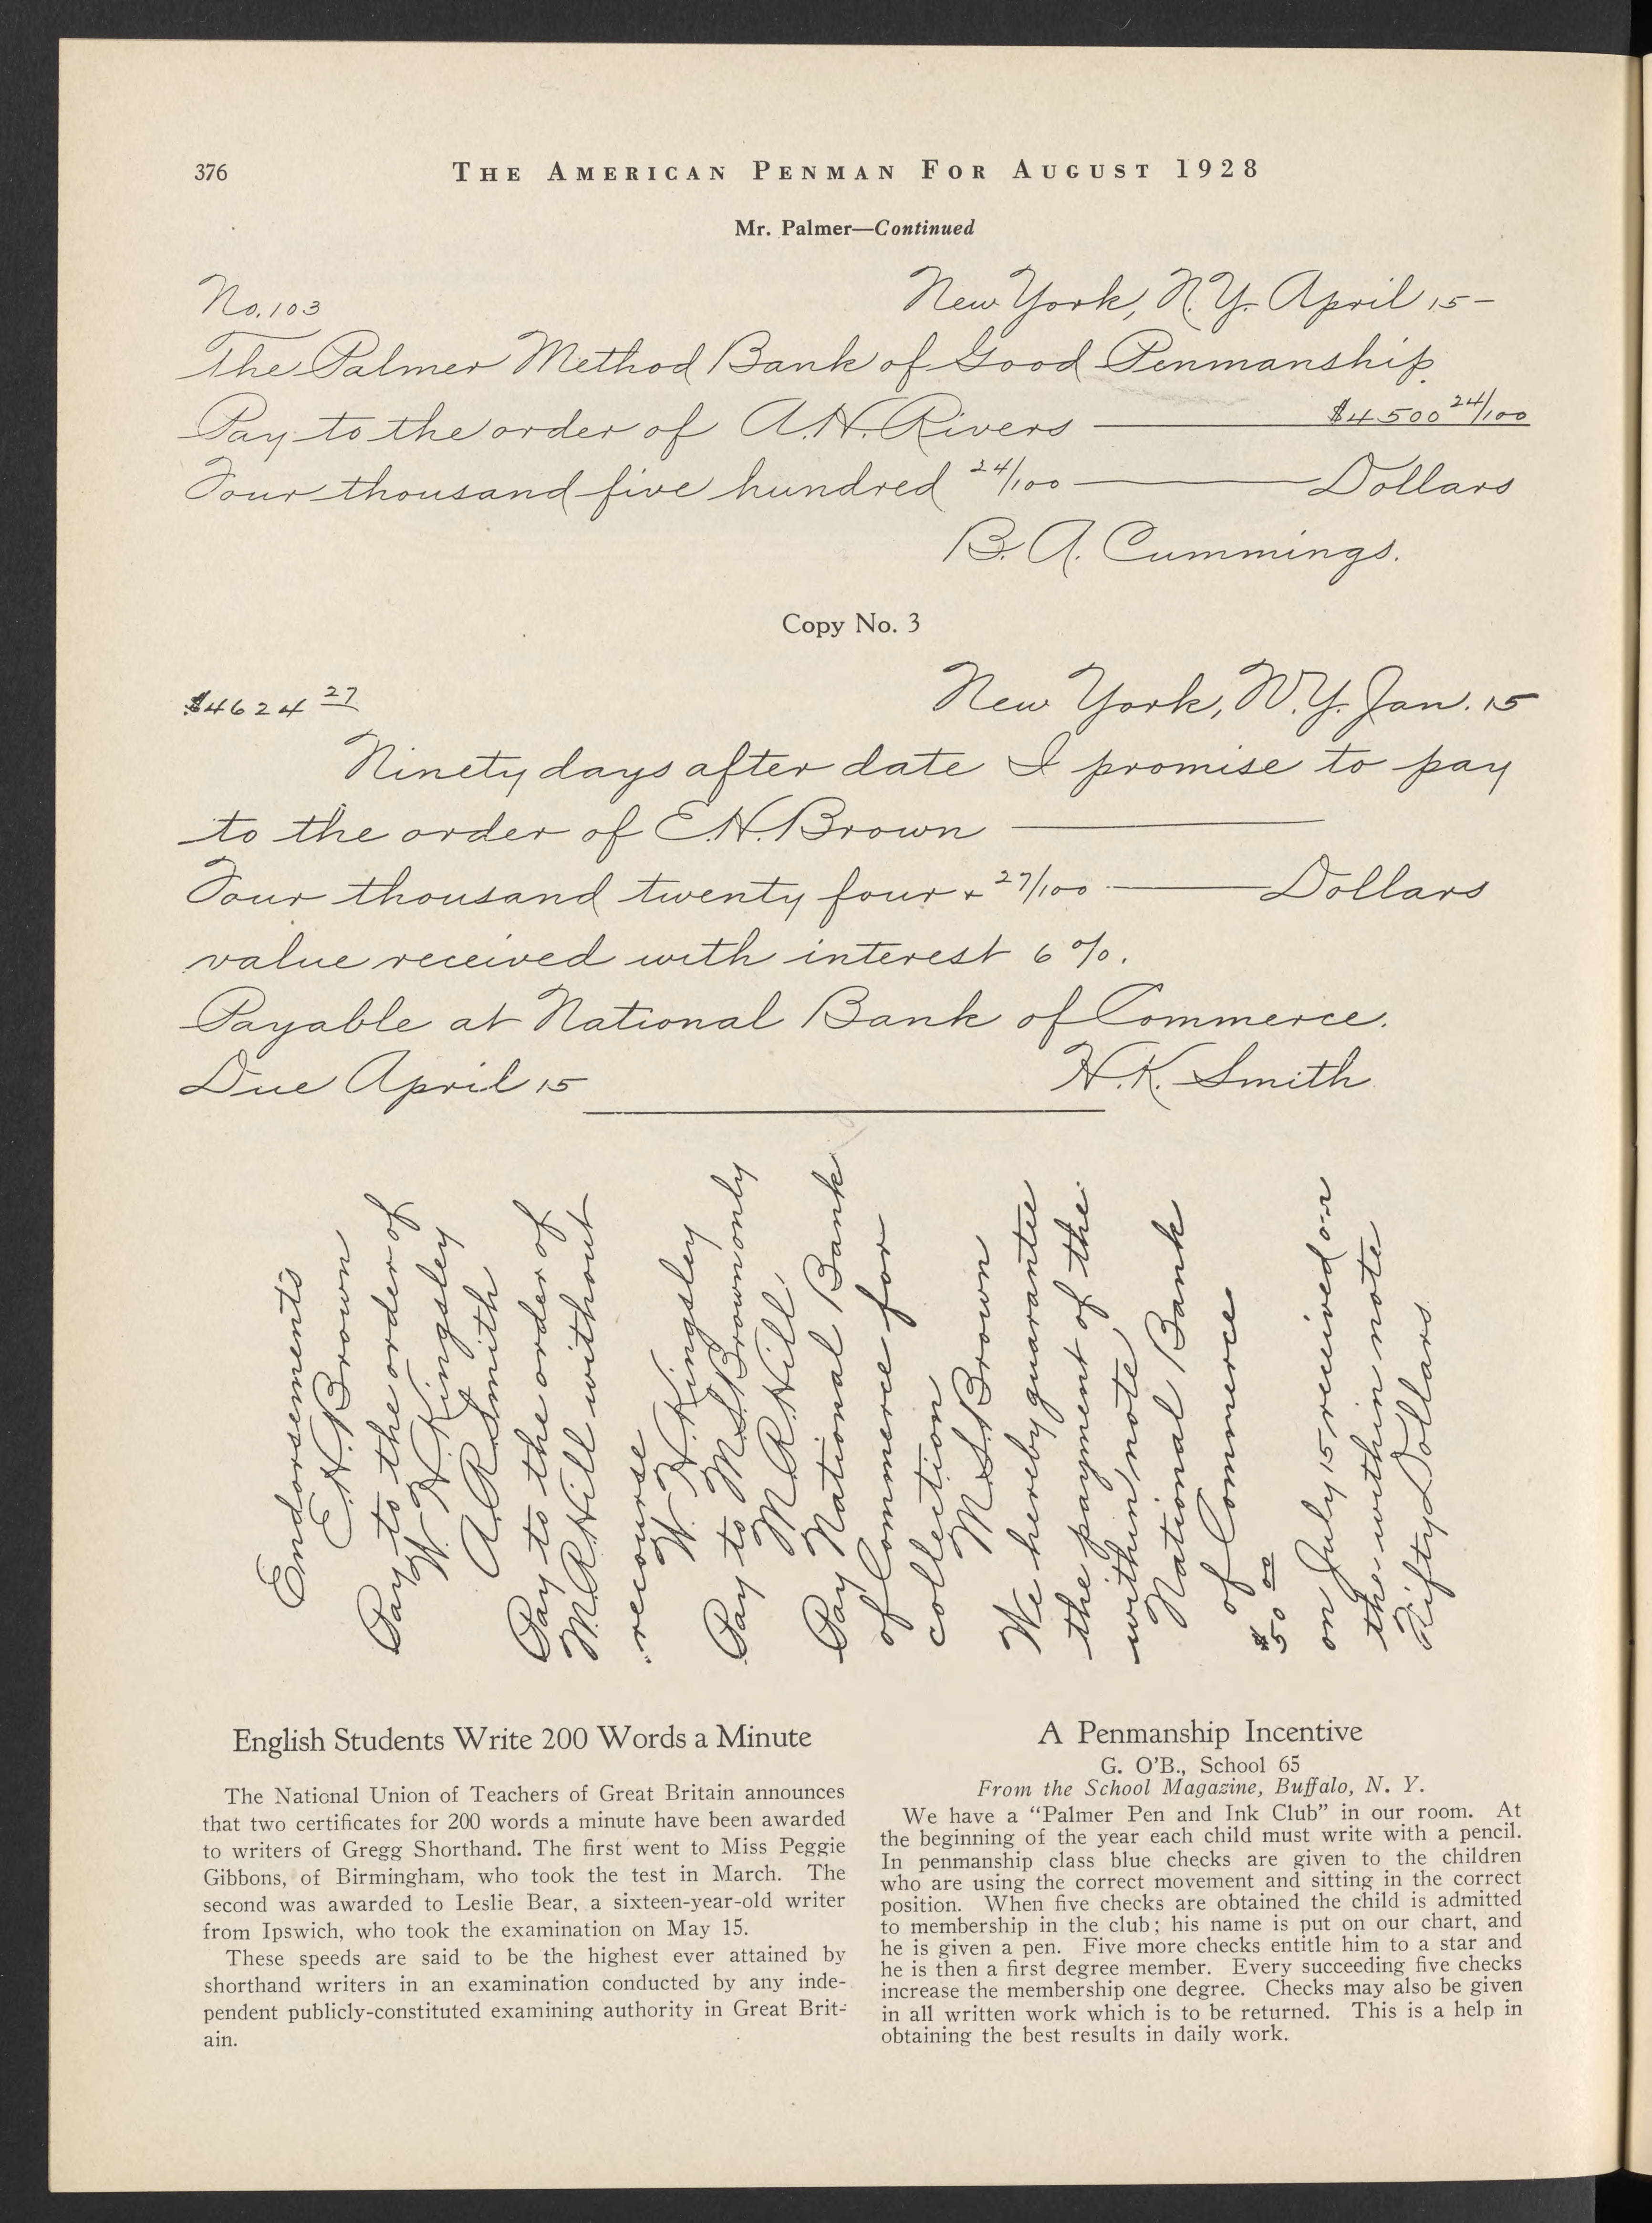 376
THE AMERICAN PENMAN FOR AUGUST 1928
Mr. Palmer—Continued
No. 103
New York, N.Y. April 15-
The Palmer Method Bank of Good Penmanship.
Pay to the order of A.H. Rivers — $4500 24/100
Four thousand five hundred 24/100 — Dollars
B. A. Cummings.
Copy No. 3
$4624 27
New York, N.Y. Jan. 15
Ninety days after date I promise to pay
to the order of E.H. Brown —
Four thousand twenty four + 27/100 — Dollars
value received with interest 6%.
Payable at National Bank of Commerce.
Due April 15
H.K. Smith
Endorsements
E.H. Brown
Pay to the order of
W. H. Kingsley
A.R. Smith
Pay to the order of
M.R. Hill without
recourse
W. H. Kingsley
Pay to M.S. Brown only
M.R. Hill,
Pay National Bank
of Commerce for
collection
M.S. Brown
We hereby guarantee
the payment of the
within note,
National Bank
of Commerce
$50 00
on July 15 received on
the within note
Fifty Dollars
English Students Write 200 Words a Minute
The National Union of Teachers of Great Britain announces
that two certificates for 200 words a minute have been awarded
to writers of Gregg Shorthand. The first went to Miss Peggie
Gibbons, of Birmingham, who took the test in March. The
second was awarded to Leslie Bear, a sixteen-year-old writer
from Ipswich, who took the examination on May 15.
These speeds are said to be the highest ever attained by
shorthand writers in an examination conducted by any inde-
pendent publicly-constituted examining authority in Great Brit-
ain.
A Penmanship Incentive
G. O'B., School 65
From the School Magazine, Buffalo, N. Y.
We have a "Palmer Pen and Ink Club" in our room. At
the beginning of the year each child must write with a pencil.
In penmanship class blue checks are given to the children
who are using the correct movement and sitting in the correct
position. When five checks are obtained the child is admitted
to membership in the club; his name is put on our chart, and
he is given a pen. Five more checks entitle him to a star and
he is then a first degree member. Every succeeding five checks
increase the membership one degree. Checks may also be given
in all written work which is to be returned. This is a help in
obtaining the best results in daily work.